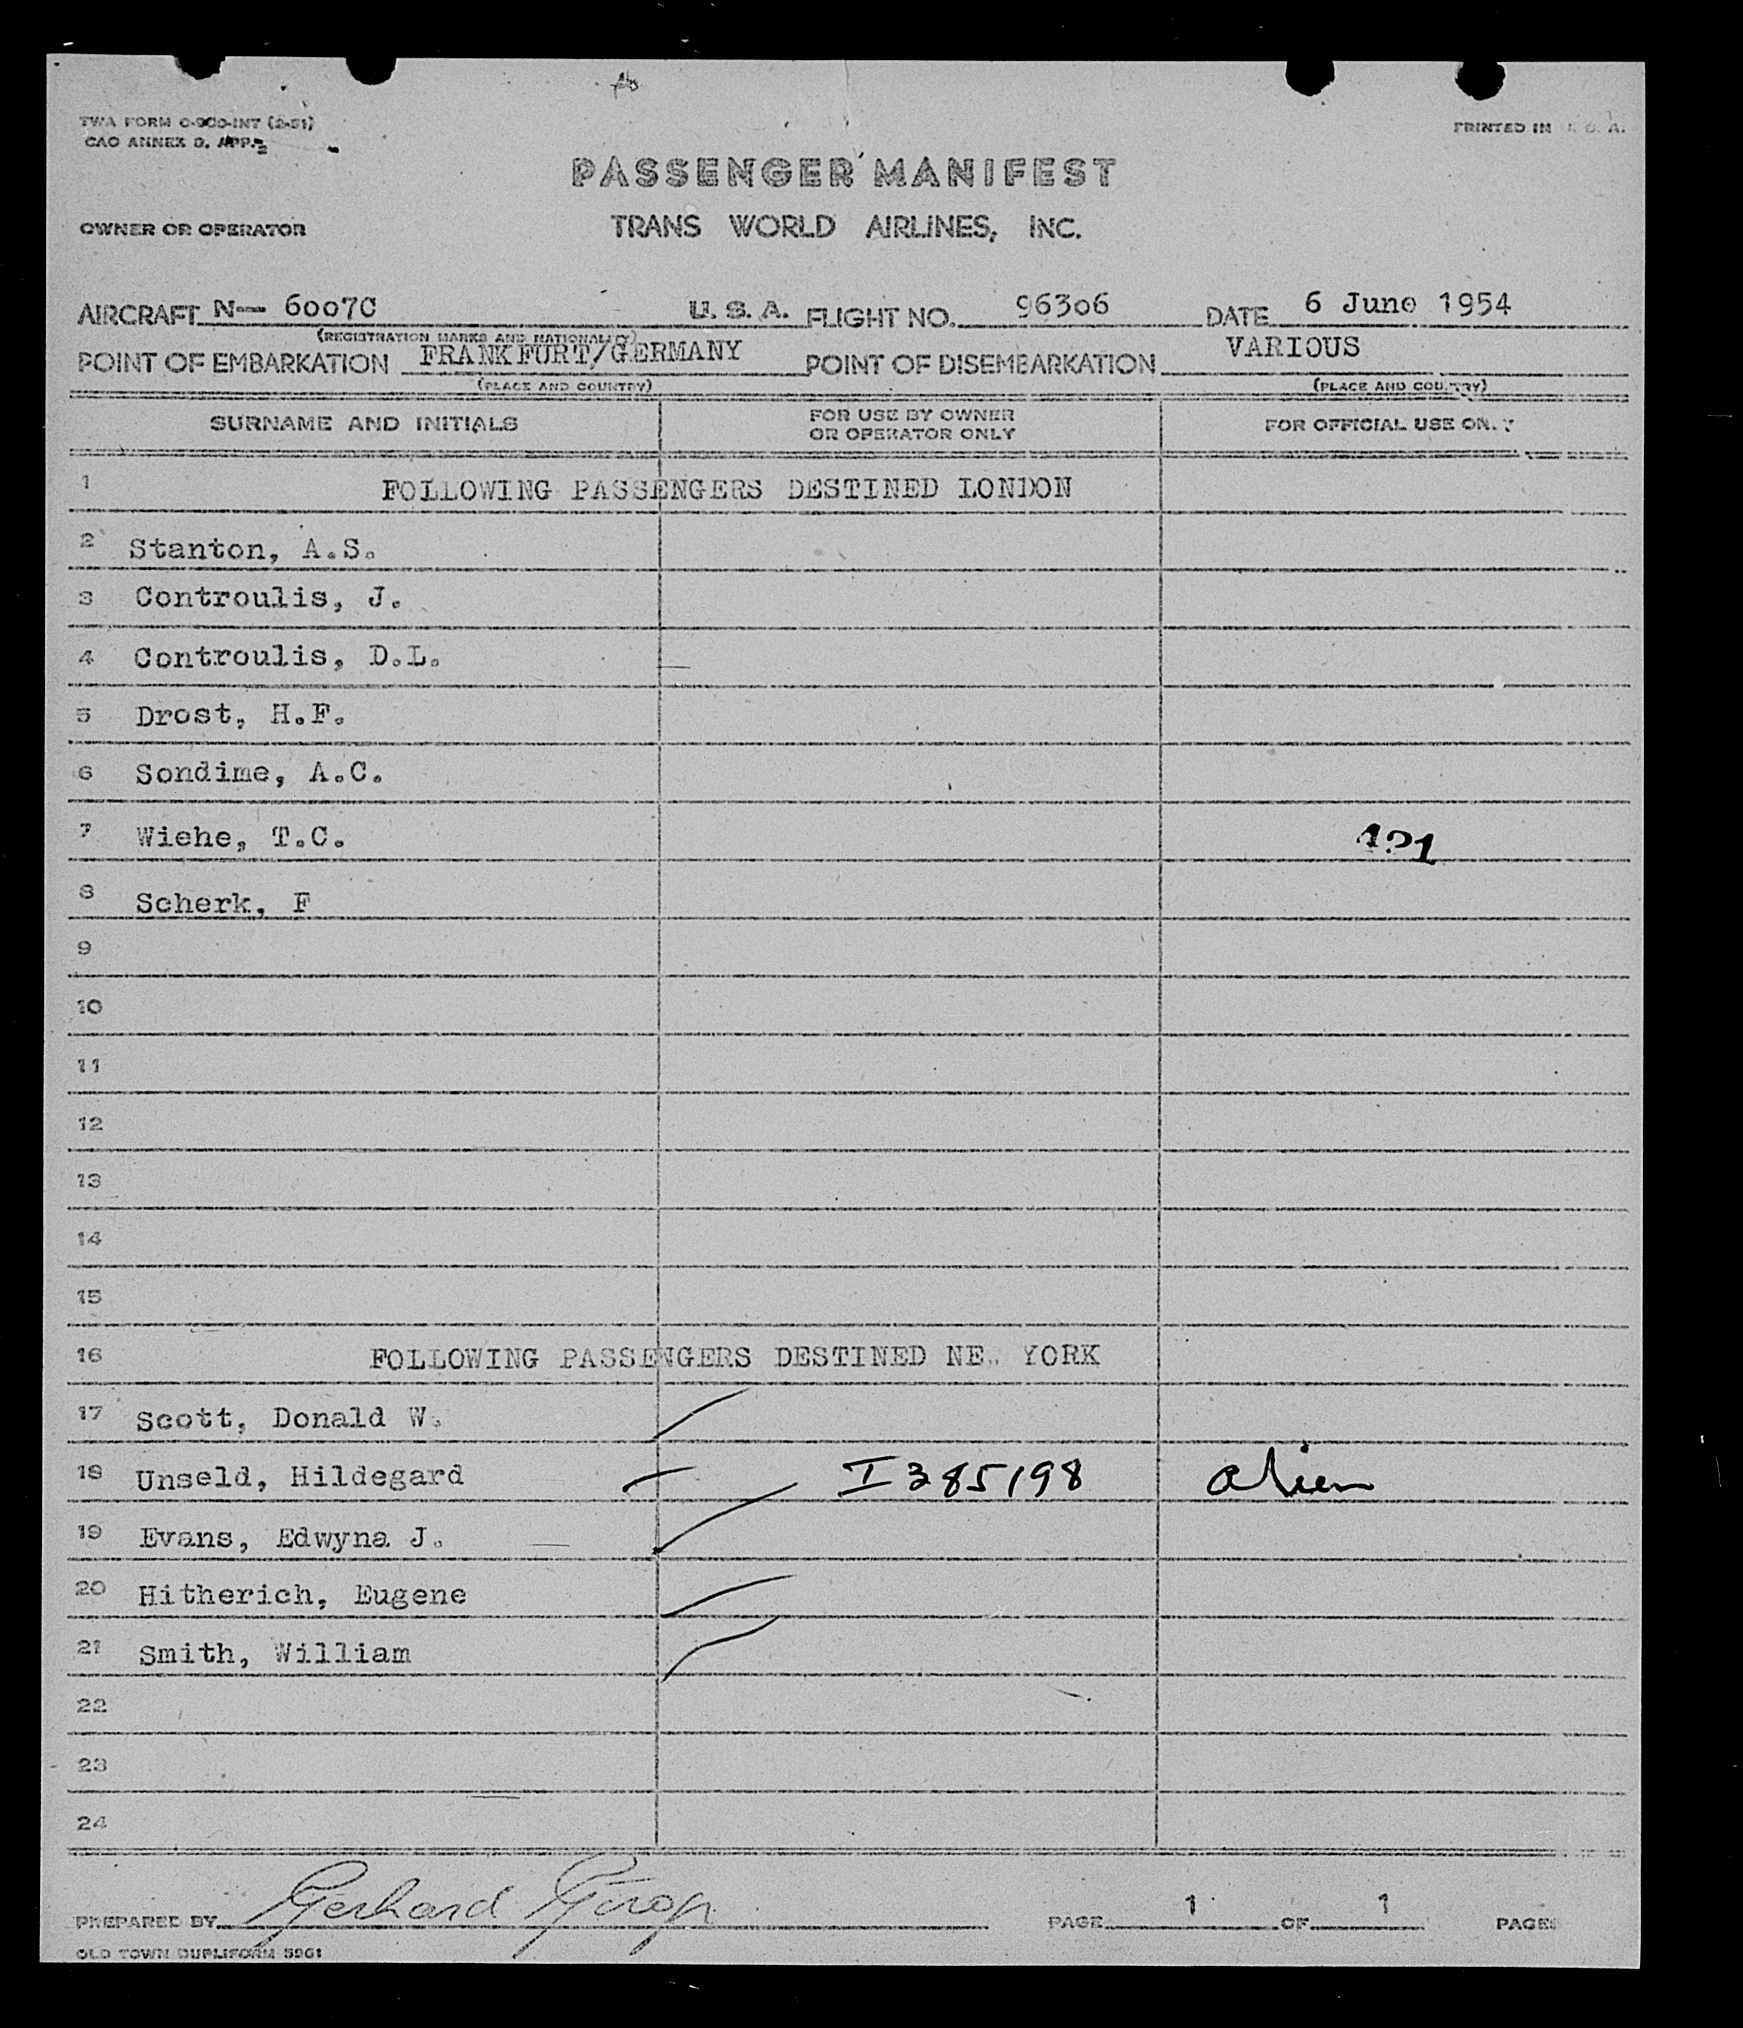 TWA FORM C-900-INT (2-51)
PRINTED IN U. S. A.
PASSENGER MANIFEST
OWNER OR OPERATOR TRANS WORLD AIRLINES, INC.
AIRCRAFT N— 6007C U. S. A. FLIGHT NO. 96306 DATE 6 June 1954
(REGISTRATION MARKS AND NATIONALITY)
POINT OF EMBARKATION FRANKFURT/GERMANY POINT OF DISEMBARKATION VARIOUS
(PLACE AND COUNTRY) (PLACE AND COUNTRY)
SURNAME AND INITIALS FOR USE BY OWNER OR OPERATOR ONLY FOR OFFICIAL USE ONLY
1 FOLLOWING PASSENGERS DESTINED LONDON
2 Stanton, A.S.
3 Controulis, J.
4 Controulis, D.L.
5 Drost, H.F.
6 Sondime, A.C.
7 Wiehe, T.C.
8 Scherk, F
9
10
11
12
13
14
15
16 FOLLOWING PASSENGERS DESTINED NE. YORK
17 Scott, Donald W.
18 Unseld, Hildegard I 385198 alien
19 Evans, Edwyna J.
20 Hitherich, Eugene
21 Smith, William
22
23
24
PREPARED BY Gerhard PAGE 1 OF 1 PAGES
OLD TOWN DUPLIFORM 5961